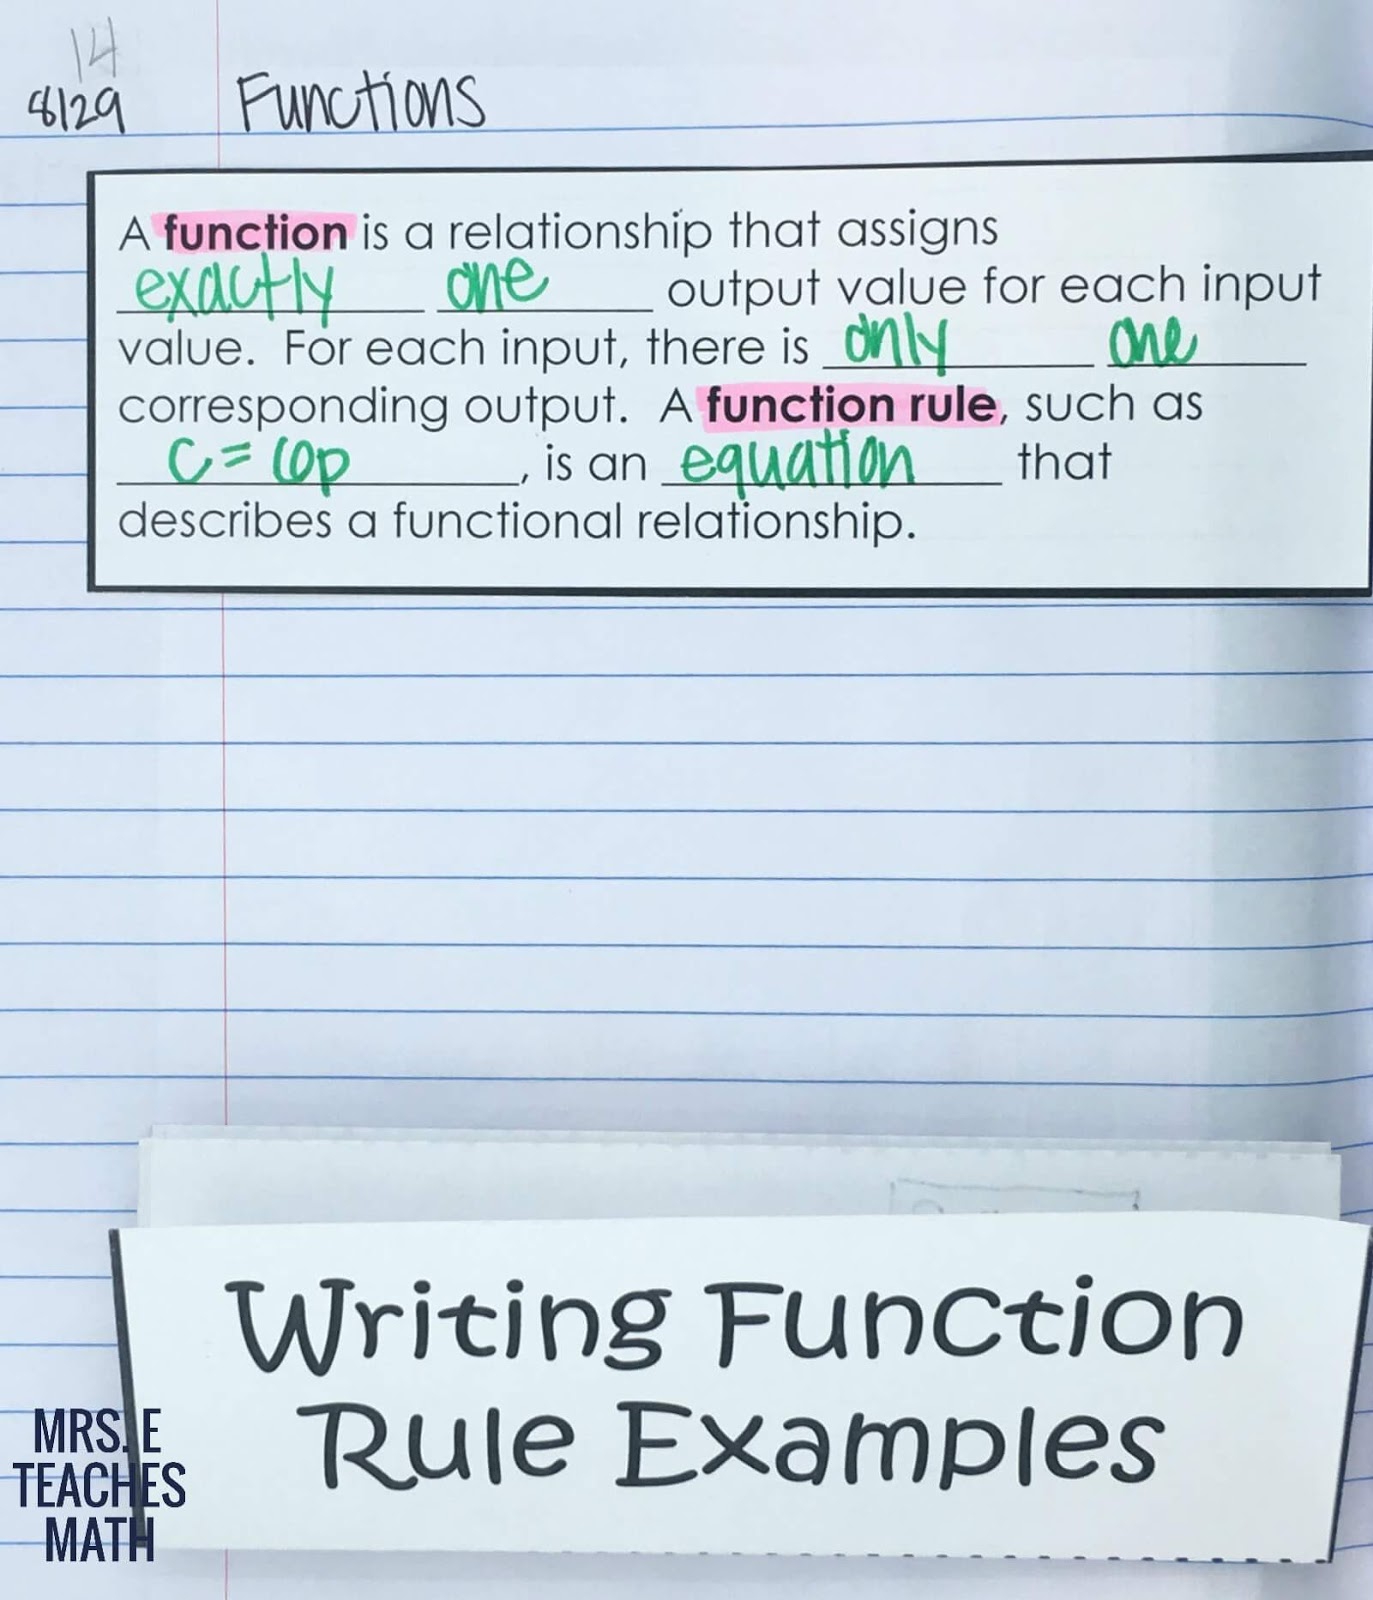 14
8/29 Functions
A function is a relationship that assigns
exactly one output value for each input
value. For each input, there is only one
corresponding output. A function rule, such as
c = 60p, is an equation that
describes a functional relationship.
Writing Function
Rule Examples
MRS. E
TEACHES
MATH